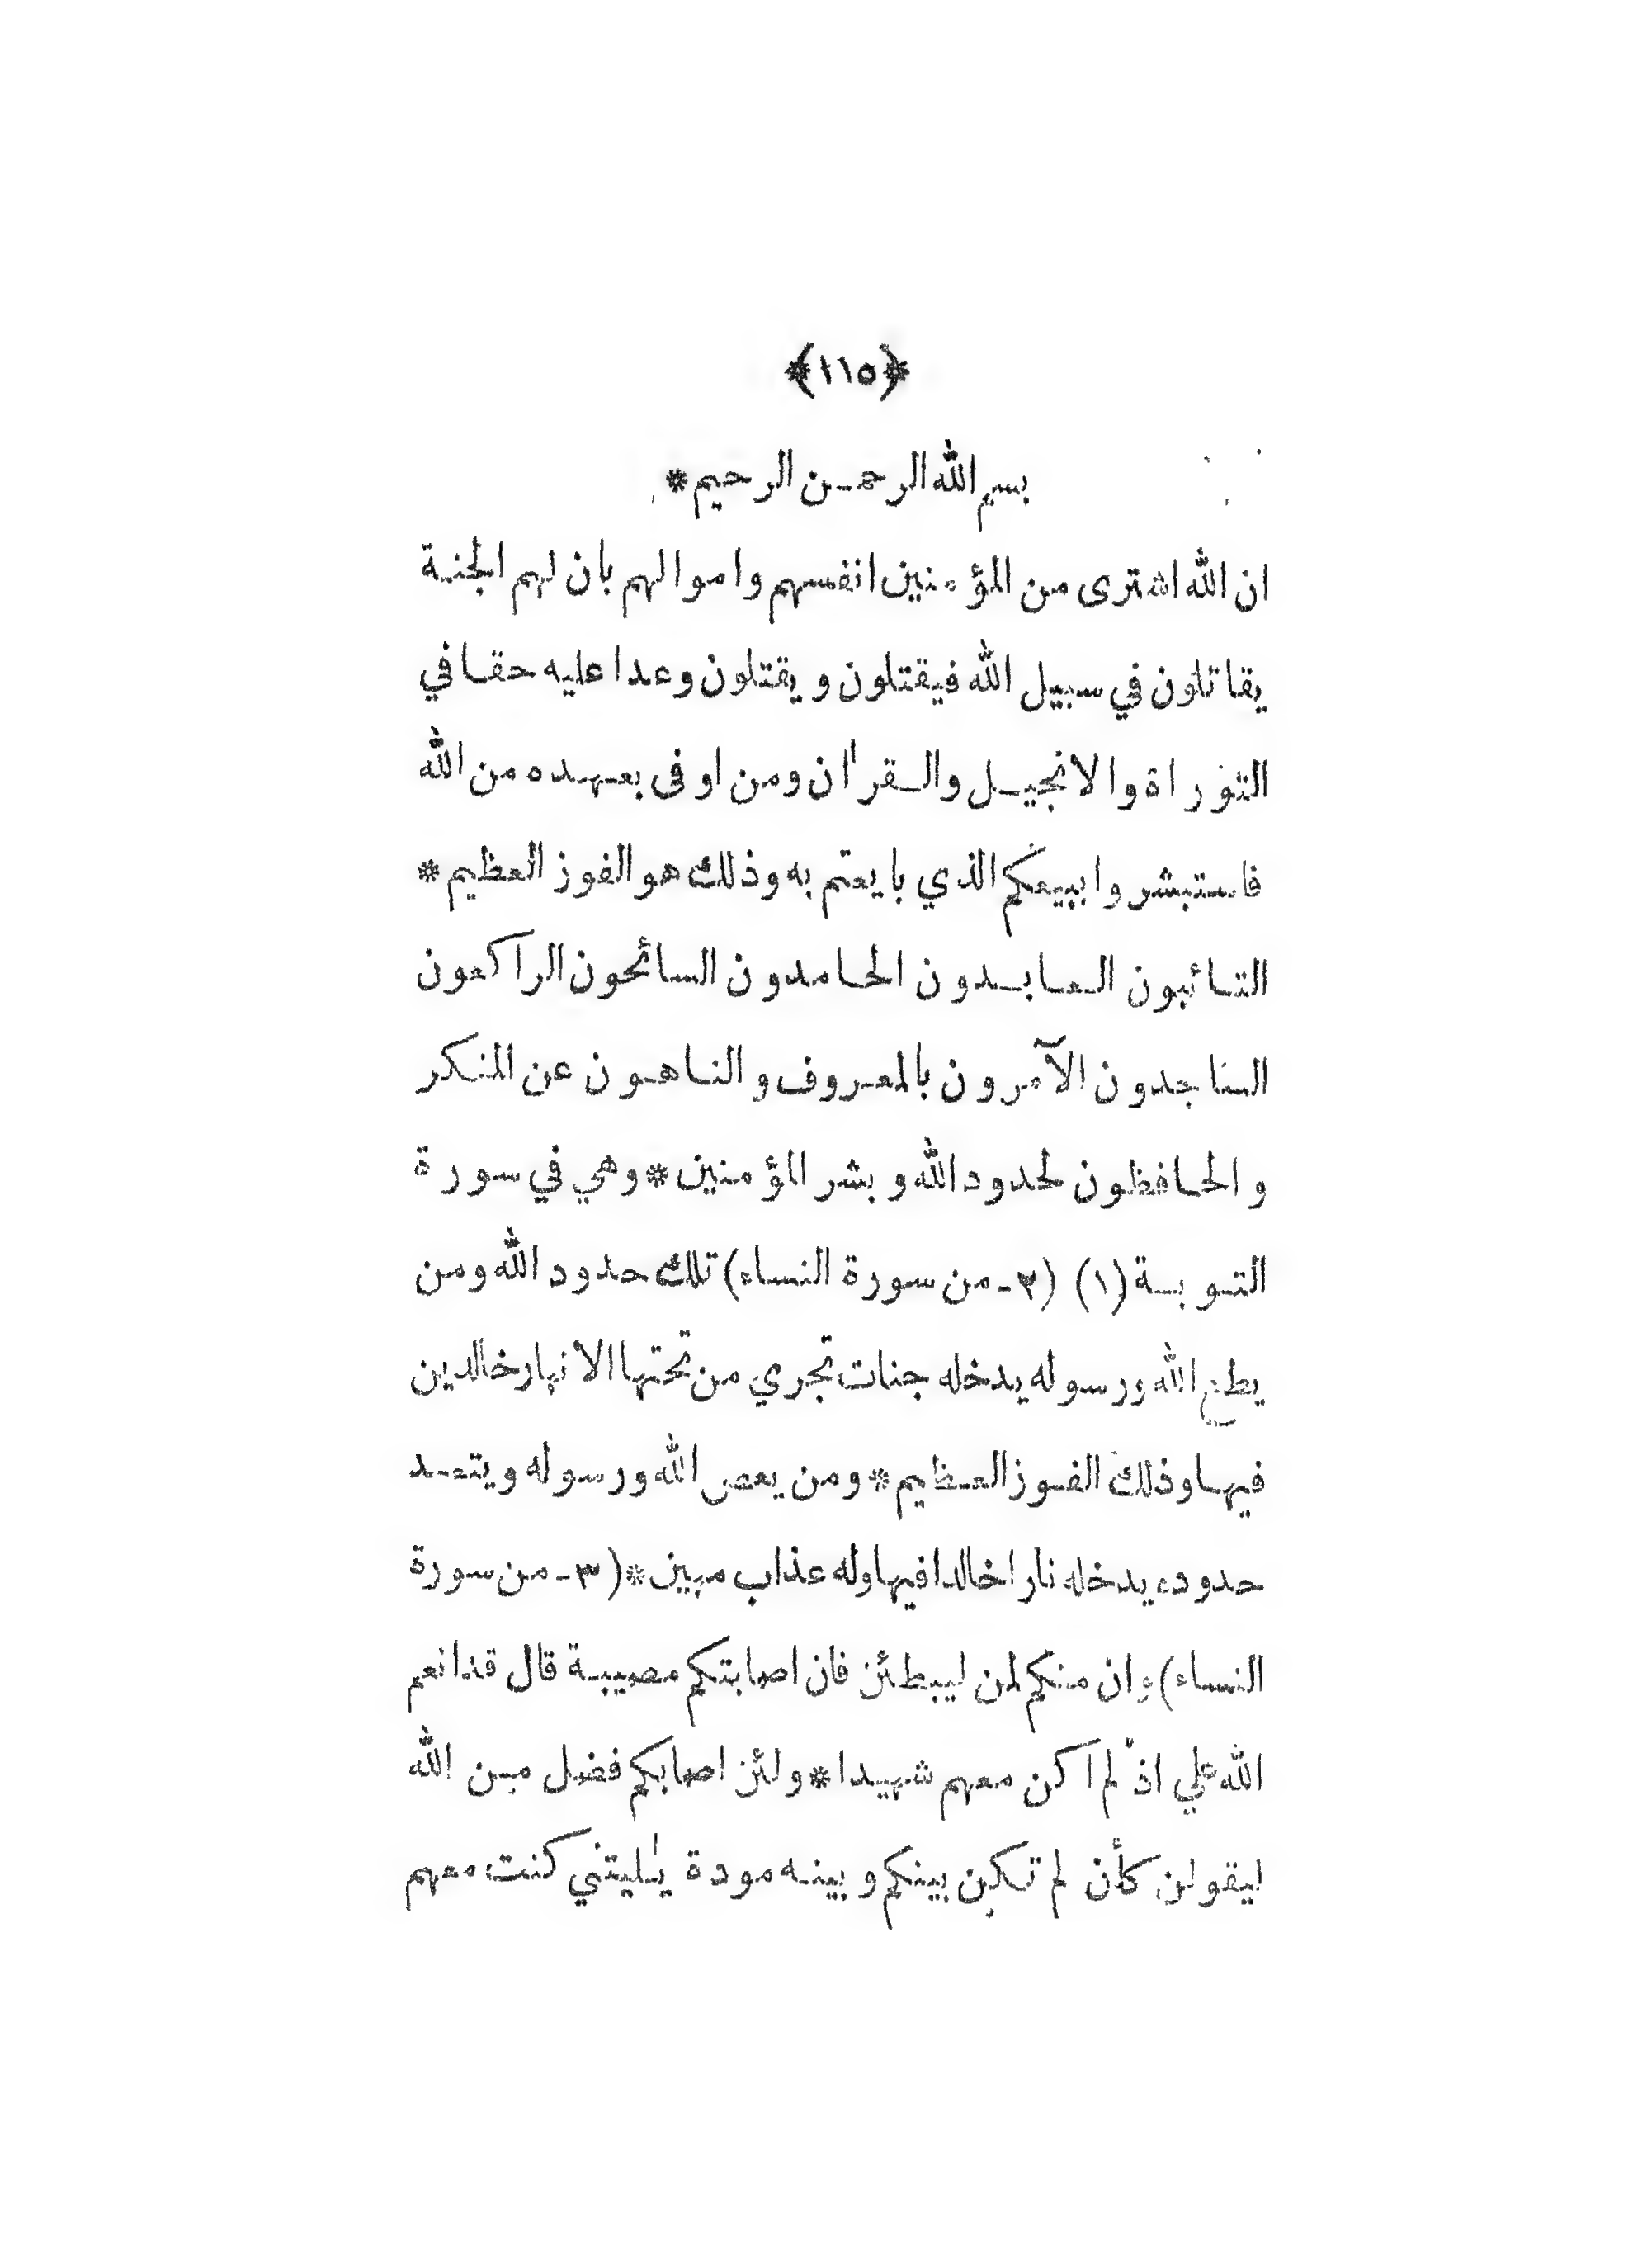 ﴿١١٥﴾
بسم الله الرحمـن الرحيم *
ان الله اشترى من المؤمنين انفسهم واموالهم بان لهم الجنة
يقاتلون في سبيل الله فيقتلون و يقتلون وعدا عليه حقا في
التوراة والانجيل والقراٰن ومن اوفى بعهده من الله
فاستبشروا ببيعكم الذي بايعتم به وذلك هو الفوز العظيم *
التائبون العابدون الحامدون السائحون الراكعون
الساجدون الآمرون بالمعروف والناهون عن المنكر
والحافظون لحدود الله و بشر المؤمنين * وهي في سورة
التوبة (١) (٢ـ من سورة النساء) تلك حدود الله ومن
يطع الله ورسوله يدخله جنات تجري من تحتها الانهار خالدين
فيها وذلك الفوز العظيم * ومن يعص الله ورسوله ويتعد
حدوده يدخله نارا خالدا فيها وله عذاب مهين * (٣ـ من سورة
النساء) وان منكم لمن ليبطئن فان اصابتكم مصيبة قال قد انعم
الله علي اذ لم اكن معهم شهيدا * ولئن اصابكم فضل من الله
ليقولن كأن لم تكن بينكم و بينه مودة يٰليتني كنت معهم